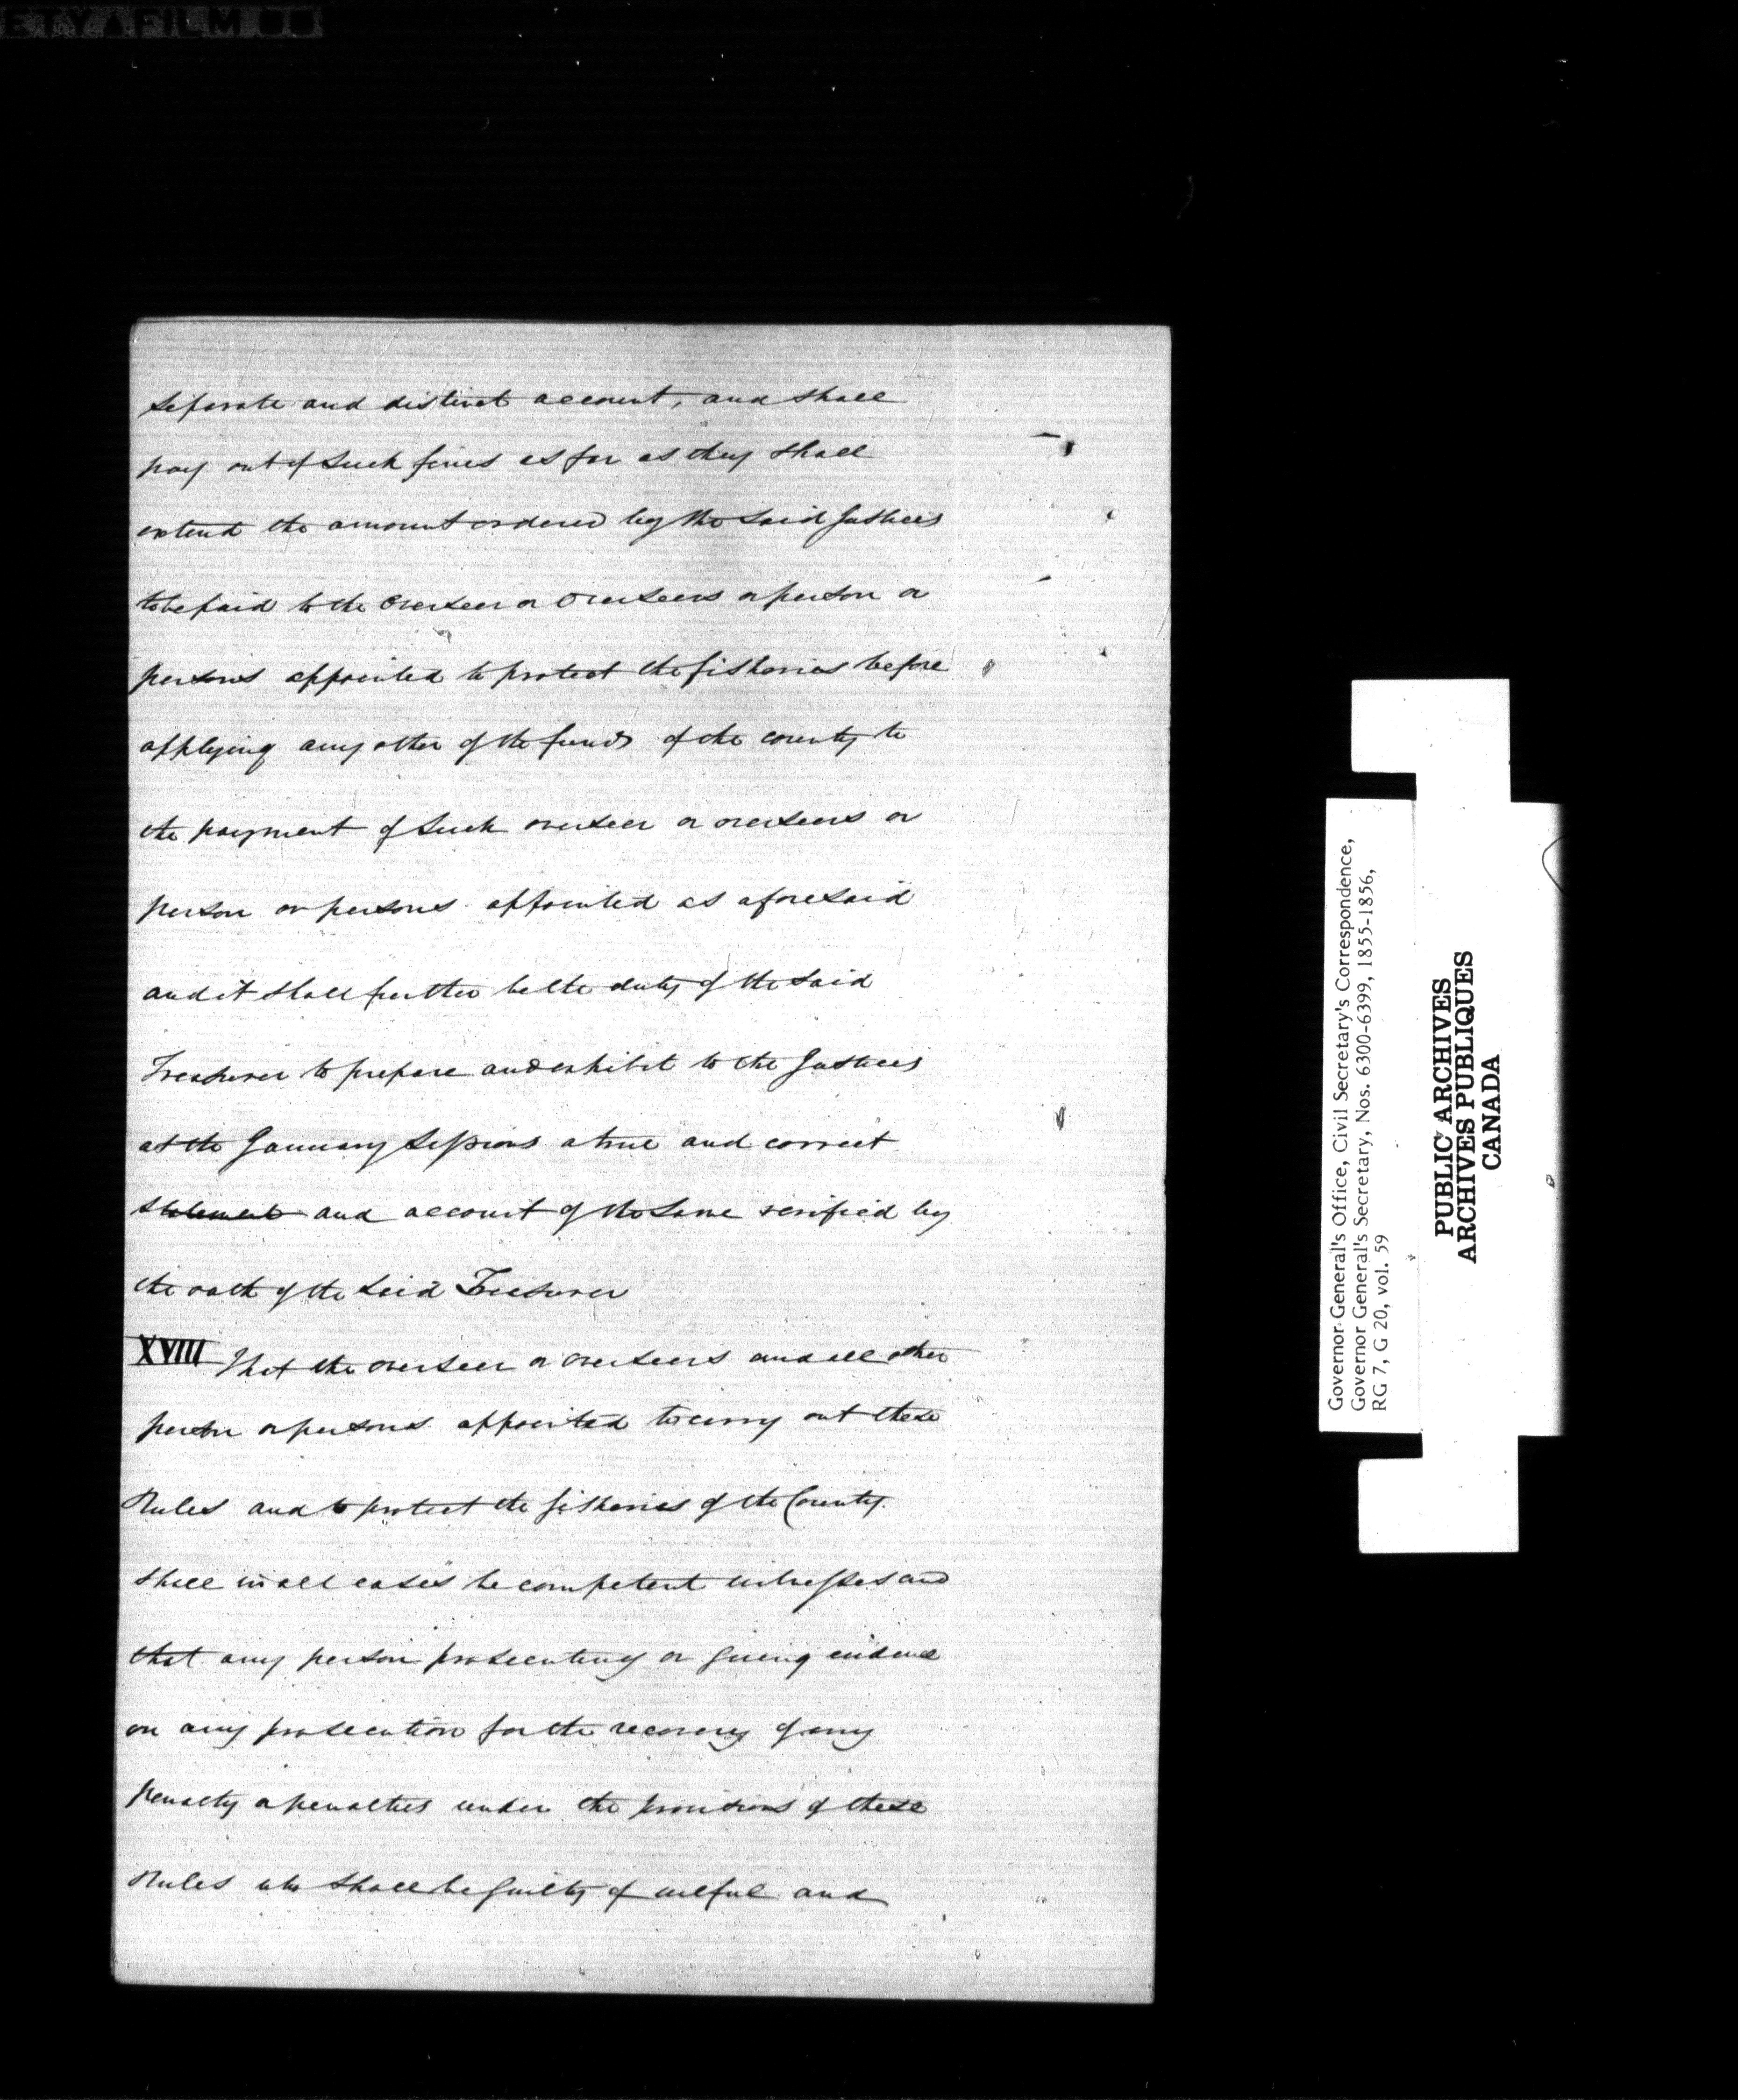 Separate and distinct account, and shall
pay out of such fines as far as they shall
extend the amount ordered by the said Justices
to be paid to the Overseer or Overseers or person or
persons appointed to protect the fisheries before
applying any other of the funds of the county to
the payment of such overseer or overseers or
person or persons appointed as aforesaid
and it shall further be the duty of the said
Treasurer to prepare and exhibit to the Justices
at the January Sessions a true and correct
statement and account of the same verified by
the oath of the said Treasurer
XVIII That the overseer or overseers and all other
person or persons appointed to carry out these
Rules and to protect the fisheries of the County
shall in all cases be competent witnesses and
that any person prosecuting or giving evidence
on any prosecution for the recovery of any
penalty or penalties under the provisions of these
Rules who shall be guilty of wilful and
Governor General's Office, Civil Secretary's Correspondence,
Governor General's Secretary, Nos. 6300-6399, 1855-1856,
RG 7, G 20, vol. 59
PUBLIC ARCHIVES
ARCHIVES PUBLIQUES
CANADA